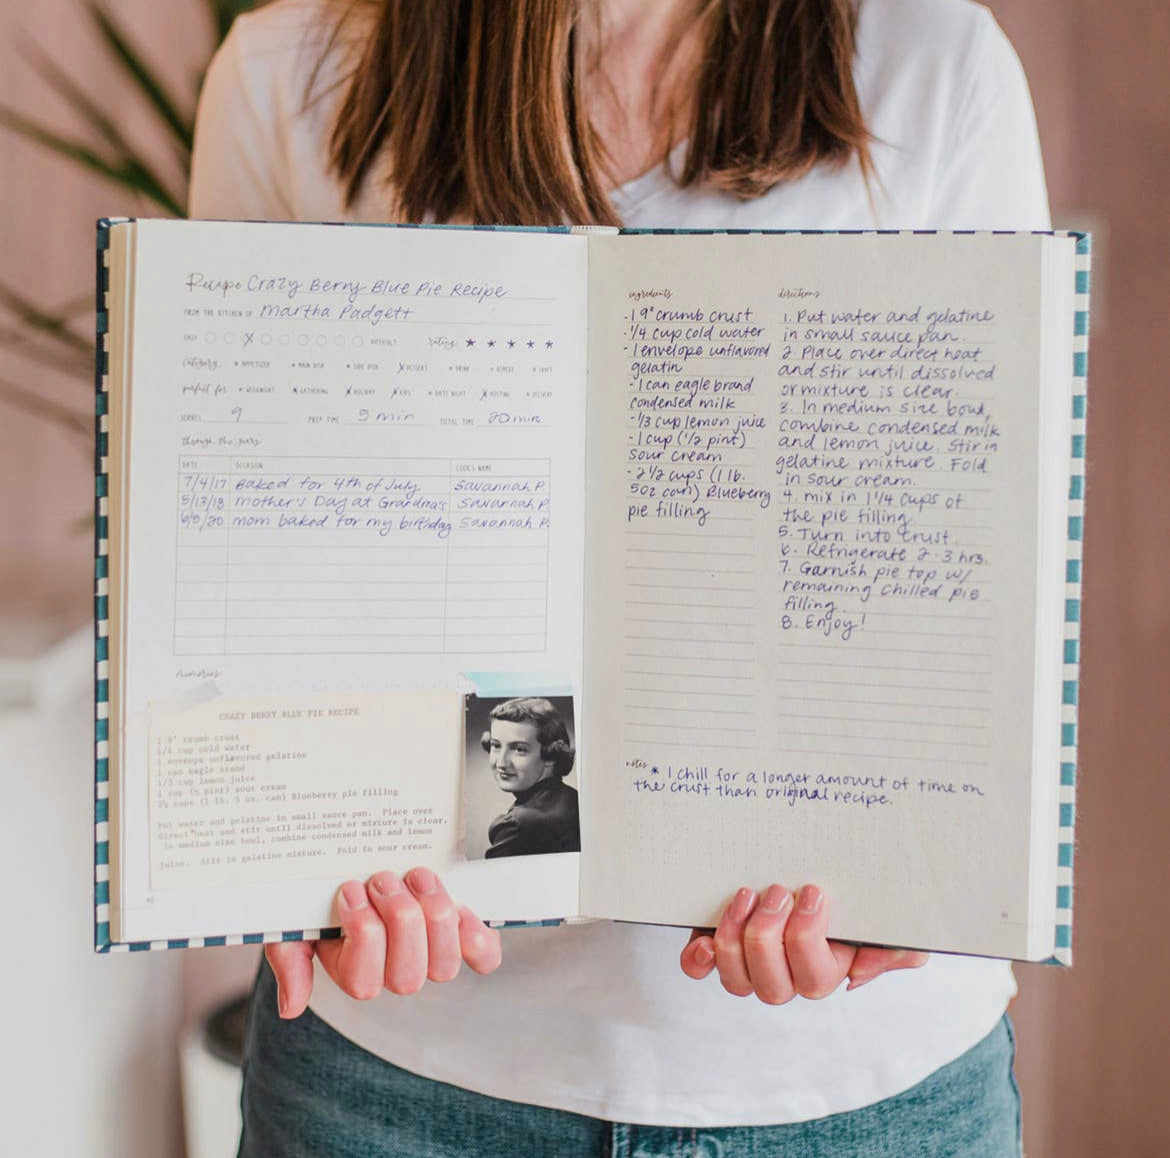 Recipe Crazy Berry Blue Pie Recipe
FROM THE KITCHEN OF Martha Padgett
EASY X DIFFICULT rating: ★ ★ ★ ★ ★
category: APPETIZER MAIN DISH SIDE DISH X DESSERT DRINK CRAFT
perfect for WEEKNIGHT X GATHERING X HOLIDAY X KIDS DATE NIGHT X HOSTING DELIVERY
SERVES 9 PREP TIME 5 min TOTAL TIME 20 min
through the years:
DATE OCCASION COOK'S NAME
7/4/17 Baked for 4th of July Savannah P.
5/13/18 mother's Day at Grandma's Savannah P.
6/8/20 mom baked for my birthday Savannah P.
memories
CRAZY BERRY BLUE PIE RECIPE
1 9" crumb crust
1/4 cup cold water
1 envelope unflavored gelatine
1 can eagle brand
1/3 cup lemon juice
1 cup (½ pint) sour cream
2½ cups (1 lb, 5 oz, can) Blueberry pie filling
Put water and gelatine in small sauce pan. Place over
direct heat and stir until dissolved or mixture is clear.
in medium size bowl, combine condensed milk and lemon
juice. Stir in gelatine mixture. Fold in sour cream.
ingredients
- 1 9" crumb crust
- 1/4 cup cold water
- 1 envelope unflavored
gelatin
- 1 can eagle brand
condensed milk
- 1/3 cup lemon juice
- 1 cup (1/2 pint)
sour cream
- 2 1/2 cups (1 lb.
5oz can) Blueberry
pie filling
directions
1. Put water and gelatine
in small sauce pan.
2. Place over direct heat
and stir until dissolved
or mixture is clear.
3. In medium size bowl,
combine condensed milk
and lemon juice. Stir in
gelatine mixture. Fold
in sour cream.
4. mix in 1 1/4 cups of
the pie filling.
5. Turn into crust.
6. Refrigerate 2-3 hrs.
7. Garnish pie top w/
remaining chilled pie
filling.
8. Enjoy!
notes
* I chill for a longer amount of time on
the crust than original recipe.